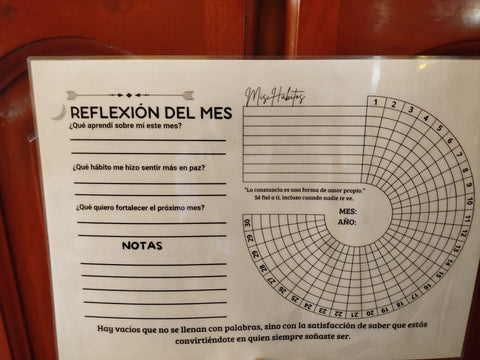 REFLEXIÓN DEL MES
¿Qué aprendí sobre mi este mes?
¿Qué hábito me hizo sentir más en paz?
¿Qué quiero fortalecer el próximo mes?
NOTAS
Mis Hábitos
1
2
3
4
5
6
7
8
9
10
11
12
13
14
15
16
17
18
19
20
21
22
23
24
25
26
27
28
29
30
"La constancia es una forma de amor propio."
Sé fiel a ti, incluso cuando nadie te ve.
MES:
AÑO:
Hay vacíos que no se llenan con palabras, sino con la satisfacción de saber que estás
convirtiéndote en quien siempre soñaste ser.